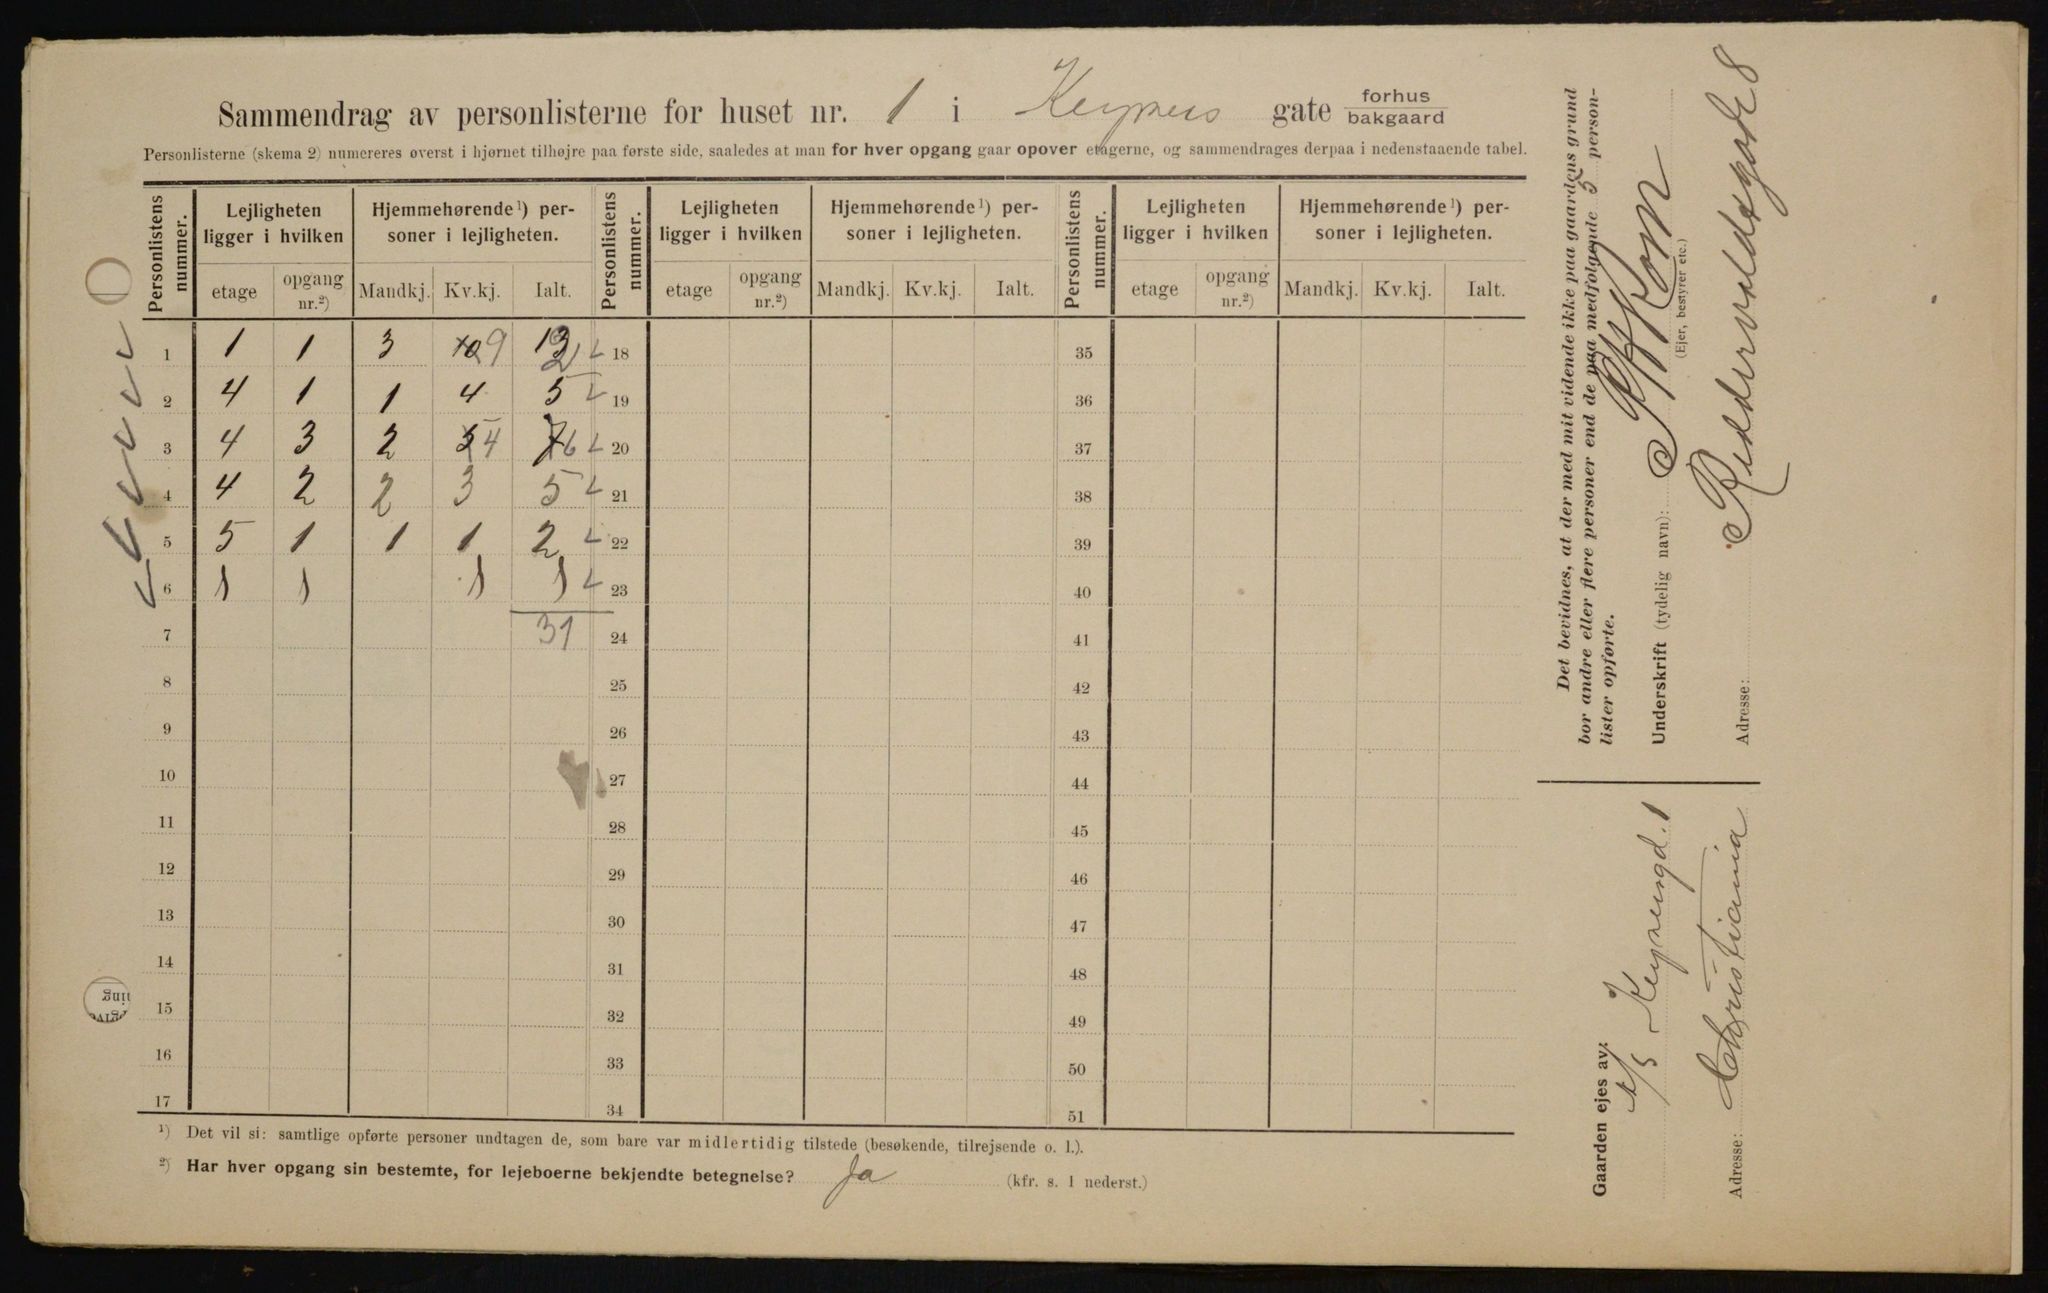 Sammendrag av personlisterne for huset nr. 1 i Keysers gate forhus bakgaard
Personlisterne (skema 2) numereres øverst i hjørnet tilhøjre paa første side, saaledes at man for hver opgang gaar opover etagerne, og sammendrages derpaa i nedenstaaende tabel.
Personlistens nummer. Lejligheten ligger i hvilken Hjemmehørende ¹) personer i lejligheten. Personlistens nummer. Lejligheten ligger i hvilken Hjemmehørende ¹) personer i lejligheten. Personlistens nummer. Lejligheten ligger i hvilken Hjemmehørende ¹) personer i lejligheten.
etage opgang nr.²) Mandkj. Kv.kj. Ialt. etage opgang nr.²) Mandkj. Kv.kj. Ialt. etage opgang nr.²) Mandkj. Kv.kj. Ialt.
1 1 1 3 10 9 13 2 18 35
2 4 1 1 4 5 19 36
3 4 3 2 5 4 7 6 20 37
4 4 2 2 3 5 21 38
5 5 1 1 1 2 22 39
6 1 1 1 1 23 40
7 31 24 41
8 25 42
9 26 43
10 27 44
11 28 45
12 29 46
13 30 47
14 31 48
15 32 49
16 33 50
17 34 51
¹) Det vil si: samtlige opførte personer undtagen de, som bare var midlertidig tilstede (besøkende, tilrejsende o. l.).
²) Har hver opgang sin bestemte, for lejeboerne bekjendte betegnelse? Ja (kfr. s. 1 nederst.)
Det bevidnes, at der med mit vidende ikke paa gaardens grund
bor andre eller flere personer end de paa medfølgende 5 person-
lister opførte.
Underskrift (tydelig navn):
(Ejer, bestyrer etc.)
Adresse: Rædervaldtsgade 8
Gaarden ejes av:
A/S Keysersgd. 1
Adresse: Christiania